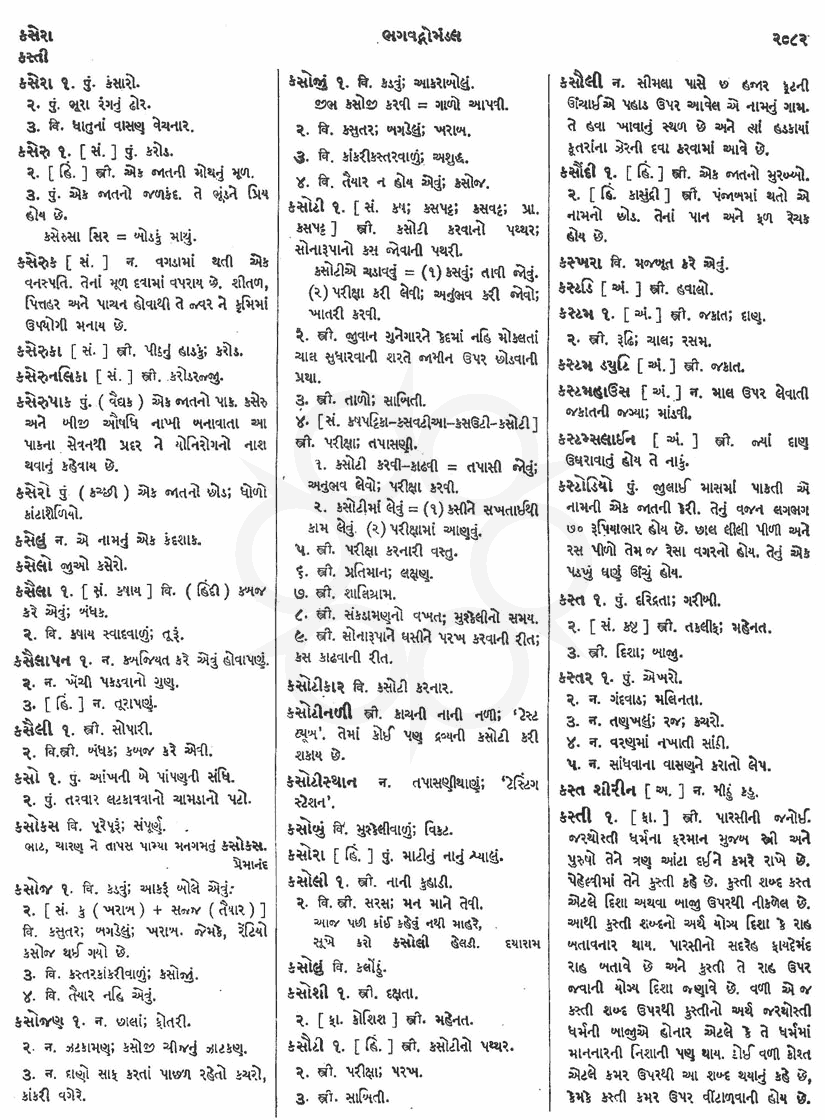 કસેરા
ભગવદ્ગોમંડલ
૨૦૮૨
કસ્તી
કસેરા ૧. પું. કંસારો.
૨. પું. ભૂરા રંગનું ઢોર.
૩. વિ. ધાતુનાં વાસણ વેચનાર.
કસેરુ ૧. [ સં. ] પું. કરોડ.
૨. [ હિં. ] સ્ત્રી. એક જાતની મોથનું મૂળ.
૩. પું. એક જાતનો જળકંદ. તે ભૂંડને પ્રિય
હોય છે.
કસેરુસા સિર = બોડકું માથું.
કસેરુક [ સં. ] ન. વગડામાં થતી એક
વનસ્પતિ. તેનાં મૂળ દવામાં વપરાય છે. શીતળ,
પિત્તહર અને પાચન હોવાથી તે જ્વર ને કૃમિમાં
ઉપયોગી મનાય છે.
કસેરુકા [ સં. ] સ્ત્રી. પીઠનું હાડકું; કરોડ.
કસેરુનલિકા [ સં. ] સ્ત્રી. કરોડરજ્જુ.
કસેરુપાક પું. ( વૈદ્યક ) એક જાતનો પાક. કસેરુ
અને બીજી ઔષધિ નાખી બનાવાતા આ
પાકના સેવનથી પ્રદર ને યોનિરોગનો નાશ
થવાનું કહેવાય છે.
કસેરો પું ( કચ્છી ) એક જાતનો છોડ; ધોળો
કાંટાશેળિયો.
કસેલું ન. એ નામનું એક કંદશાક.
કસેલો જુઓ કસેરો.
કસૈલા ૧. [ સં. કષાય ] વિ. ( હિંદી ) કબજ
કરે એવું; બંધક.
૨. વિ. કષાય સ્વાદવાળું; તૂરું.
કસૈલાપન ૧. ન. કબજિયત કરે એવું હોવાપણું.
૨. ન. ખેંચી પકડવાનો ગુણ.
૩. [ હિં. ] ન. તૂરાપણું.
કસૈલી ૧. સ્ત્રી. સોપારી.
૨. વિ.સ્ત્રી. બંધક; કબજ કરે એવી.
કસો ૧. પું. આંખની બે પાંપણની સંધિ.
૨. પું. તરવાર લટકાવવાનો ચામડાનો પટો.
કસોકસ વિ. પૂરેપૂરું; સંપૂર્ણ.
ભાટ, ચારણ ને તાપસ પામ્યા મનગમતું કસોકસ.
પ્રેમાનંદ
કસોજ ૧. વિ. કડવું; આકરૂં બોલે એવું.
૨. [ સં. કુ ( ખરાબ ) + સજ્જ ( તૈયાર ) ]
વિ. કસુતર; બગડેલું; ખરાબ. જેમકે, રેંટિયો
કસોજ થઈ ગયો છે.
૩. વિ. કસ્તરકાંકરીવાળું; કસોજું.
૪. વિ. તૈયાર નહિ એવું.
કસોજણ ૧. ન. છાલાં; ફોતરી.
૨. ન. ઝટકામણ; કસોજી ચીજનું ઝાટકણ.
૩. ન. દાણો સાફ કરતાં પાછળ રહેતો કચરો,
કાંકરી વગેરે.
કસોજું ૧. વિ. કડવું; આકરાબોલું.
જીભ કસોજી કરવી = ગાળો આપવી.
૨. વિ. કસુતર; બગડેલું; ખરાબ.
૩. વિ. કાંકરીકસ્તરવાળું; અશુદ્ધ.
૪. વિ. તૈયાર ન હોય એવું; કસોજ.
કસોટી ૧. [ સં. કષ; કસપટ્ટ; કસવટ્ટ; પ્રા.
કસપટ્ટ ] સ્ત્રી. કસોટી કરવાનો પથ્થર;
સોનારૂપાનો કસ જોવાની પથરી.
કસોટીએ ચડાવવું = (૧) કસવું; તાવી જોવું.
(૨) પરીક્ષા કરી લેવી; અનુભવ કરી જોવો;
ખાતરી કરવી.
૨. સ્ત્રી. જુવાન ગુનેગારને કેદમાં નહિ મોકલતાં
ચાલ સુધારવાની શરતે જામીન ઉપર છોડવાની
પ્રથા.
૩. સ્ત્રી. તાળો; સાબિતી.
૪. [ સં. કષપટ્ટિકા-કસવટીઆ-કસઉટી-કસોટી ]
સ્ત્રી. પરીક્ષા; તપાસણી.
૧. કસોટી કરવી-કાઢવી = તપાસી જોવું;
અનુભવ લેવો; પરીક્ષા કરવી.
૨. કસોટીમાં લેવું = (૧) કસીને સખતાઈથી
કામ લેવું. (૨) પરીક્ષામાં આણવું.
૫. સ્ત્રી. પરીક્ષા કરનારી વસ્તુ.
૬. સ્ત્રી. પ્રતિમાન; લક્ષણ.
૭. સ્ત્રી. શાલિગ્રામ.
૮. સ્ત્રી. સંકડામણનો વખત; મુશ્કેલીનો સમય.
૯. સ્ત્રી. સોનારૂપાને ઘસીને પરખ કરવાની રીત;
કસ કાઢવાની રીત.
કસોટીકાર વિ. કસોટી કરનાર.
કસોટીનળી સ્ત્રી. કાચની નાની નળી; ‘ટેસ્ટ
ટ્યૂબ’. તેમાં કોઈ પણ દ્રવ્યની કસોટી કરી
શકાય છે.
કસોટીસ્થાન ન. તપાસણીથાણું; ‘ટેસ્ટિંગ
સ્ટેશન’.
કસોબું વિ. મુશ્કેલીવાળું; વિકટ.
કસોરા [ હિં. ] પું. માટીનું નાનું પ્યાલું.
કસોલી ૧. સ્ત્રી. નાની કુહાડી.
૨. વિ.સ્ત્રી. સરસ; મન માને તેવી.
આજ પછી કાંઈ કહેવું નથી માહરે,
સૂખે કરો કસોલી હેલડી. દયારામ
કસોલું વિ. કલોહું.
કસોશી ૧. સ્ત્રી. દક્ષતા.
૨. [ ફા. કોશિશ ] સ્ત્રી. મહેનત.
કસૌટી ૧. [ હિં. ] સ્ત્રી. કસોટીનો પથ્થર.
૨. સ્ત્રી. પરીક્ષા; પરખ.
૩. સ્ત્રી. સાબિતી.
કસૌલી ન. સીમલા પાસે છ હજાર ફૂટની
ઊંચાઈએ પહાડ ઉપર આવેલ એ નામનું ગામ.
તે હવા ખાવાનું સ્થળ છે અને ત્યાં હડકાયા
કૂતરાંના ઝેરની દવા કરવામાં આવે છે.
કસૌંદી ૧. [ હિં. ] સ્ત્રી. એક જાતનો મુરબ્બો.
૨. [ હિં. કાસુંદ્રી ] સ્ત્રી. પંજાબમાં થતો એ
નામનો છોડ. તેનાં પાન અને ફળ રેચક
હોય છે.
કસ્ખરા વિ. મજબૂત કરે એવું.
કસ્ટડિ [ અં. ] સ્ત્રી. હવાલો.
કસ્ટમ ૧. [ અં. ] સ્ત્રી. જકાત; દાણ.
૨. સ્ત્રી. રૂઢિ; ચાલ; રસમ.
કસ્ટમ ડ્યુટિ [ અં. ] સ્ત્રી. જકાત.
કસ્ટમહાઉસ [ અં. ] ન. માલ ઉપર લેવાતી
જકાતની જગ્યા; માંડવી.
કસ્ટમ્સલાઈન [ અં. ] સ્ત્રી. જ્યાં દાણ
ઉઘરાવાતું હોય તે નાકું.
કસ્ટોડિયો પું. જુલાઈ માસમાં પાકતી એ
નામની એક જાતની કેરી. તેનું વજન લગભગ
૭૦ રૂપિયાભાર હોય છે. છાલ લીલી પીળી અને
રસ પીળો તેમ જ રેસા વગરનો હોય. તેનું એક
પડખું ઘણું ઊંચું હોય.
કસ્ત ૧. પું. દરિદ્રતા; ગરીબી.
૨. [ સં. કષ્ટ ] સ્ત્રી. તકલીફ; મહેનત.
૩. સ્ત્રી. દિશા; બાજુ.
કસ્તર ૧. પું. એખરો.
૨. ન. ગંદવાડ; મલિનતા.
૩. ન. તણખલું; રજ; કચરો.
૪. ન. વરણમાં નખાતી સાંઠી.
૫. ન. સાંધવાના વાસણને કરાતો લેપ.
કસ્ત શીરીન [ અ. ] ન. મીઠું કઠુ.
કસ્તી ૧. [ ફા. ] સ્ત્રી. પારસીની જનોઈ.
જરથોસ્તી ધર્મના ફરમાન મુજબ સ્ત્રી અને
પુરુષો તેને ત્રણ આંટા દઈને કમરે રાખે છે.
પેહેલ્વીમાં તેને કુસ્તી કહે છે. કુસ્તી શબ્દ કસ્ત
એટલે દિશા અથવા બાજુ ઉપરથી નીકળેલ છે.
આથી કુસ્તી શબ્દનો અર્થ યોગ્ય દિશા કે રાહ
બતાવનાર થાય. પારસીનો સદરેહ ફાયદેમંદ
રાહ બતાવે છે અને કુસ્તી તે રાહ ઉપર
જવાની યોગ્ય દિશા જણાવે છે. વળી એ જ
કસ્તી શબ્દ ઉપરથી કુસ્તીનો અર્થ જરથોસ્તી
ધર્મની બાજુએ હોનાર એટલે કે તે ધર્મમાં
માનનારની નિશાની પણ થાય. કોઈ વળી કોશ્ત
એટલે કમર ઉપરથી આ શબ્દ થયાનું કહે છે,
કેમકે કસ્તી કમર ઉપર વીંટાળવાની હોય છે.